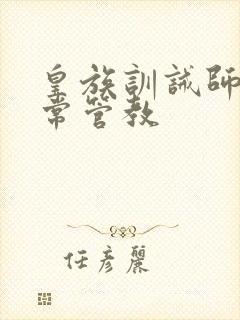 皇族訓誡師
常管教
任彥麗